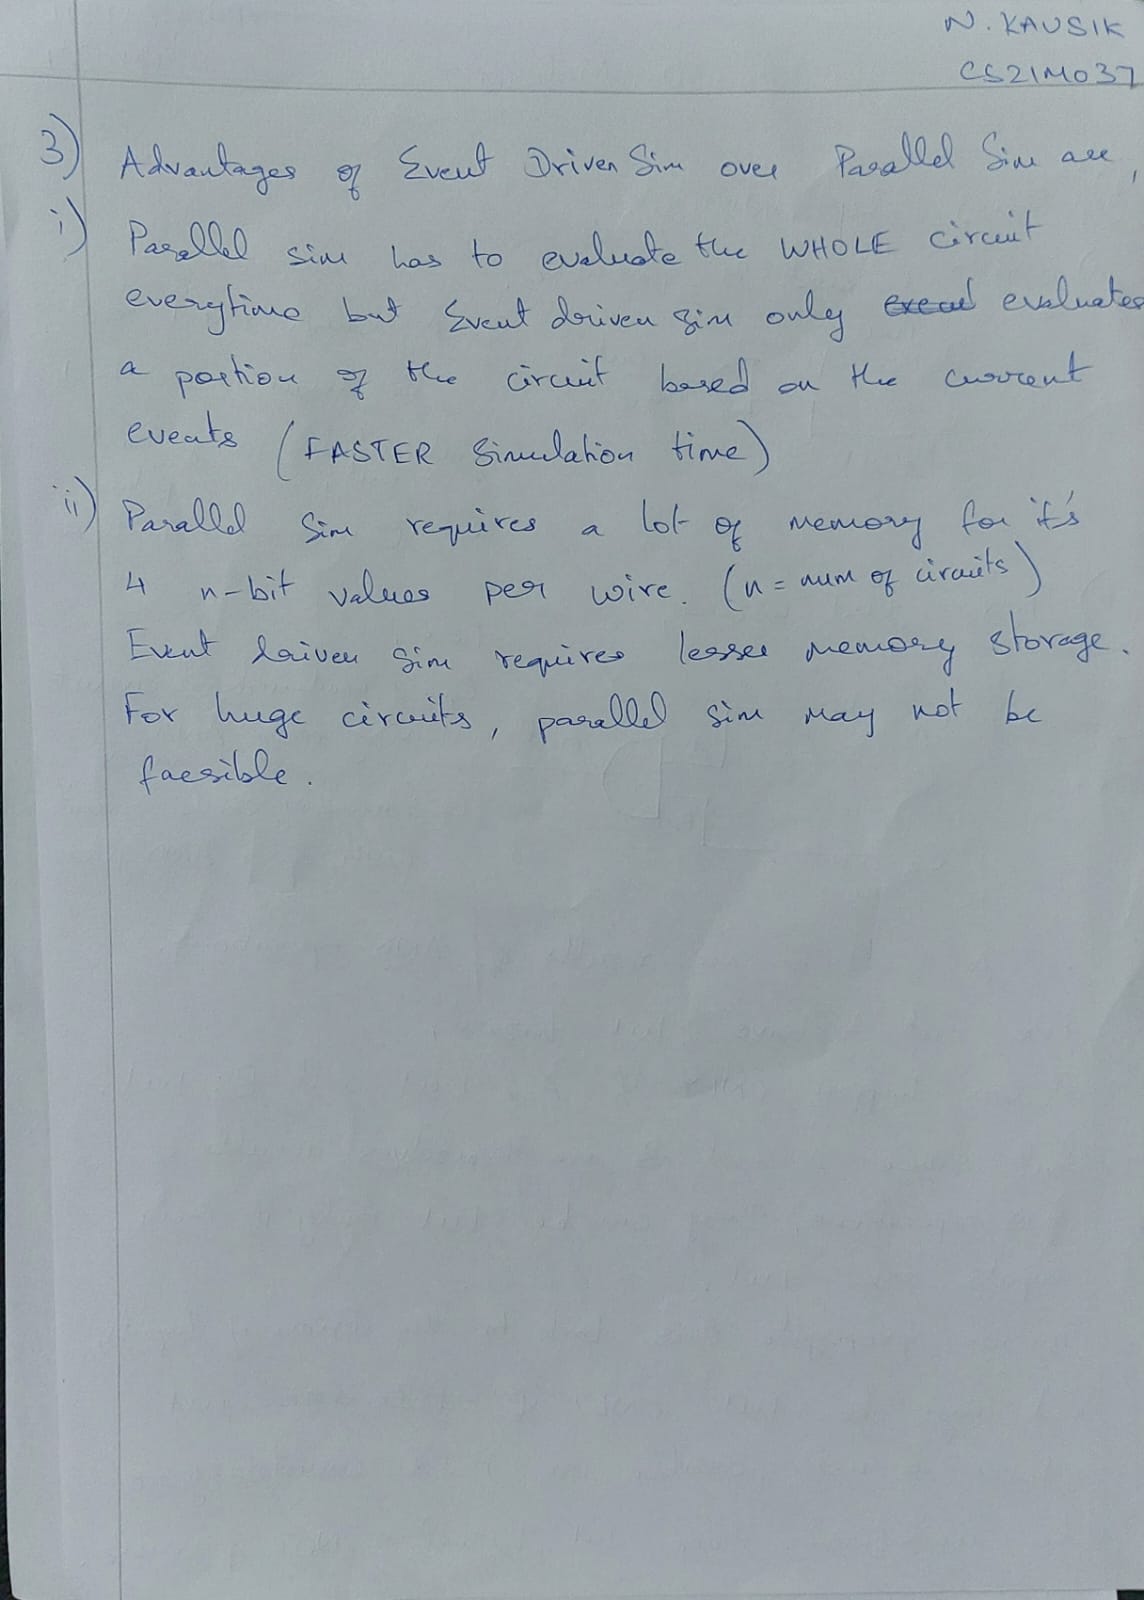 N. KAUSIK
CS21M037
3) Advantages of Event Driven Sim over Parallel Sim are,
i) Parallel sim has to evaluate the WHOLE circuit
everytime but Event driven sim only evaluates
a portion of the circuit based on the current
events (FASTER Simulation time)
ii) Parallel Sim requires a lot of memory for it's
4 n-bit values per wire. (n = num of circuits)
Event driven Sim requires lesser memory storage.
For huge circuits, parallel sim may not be
faesible.